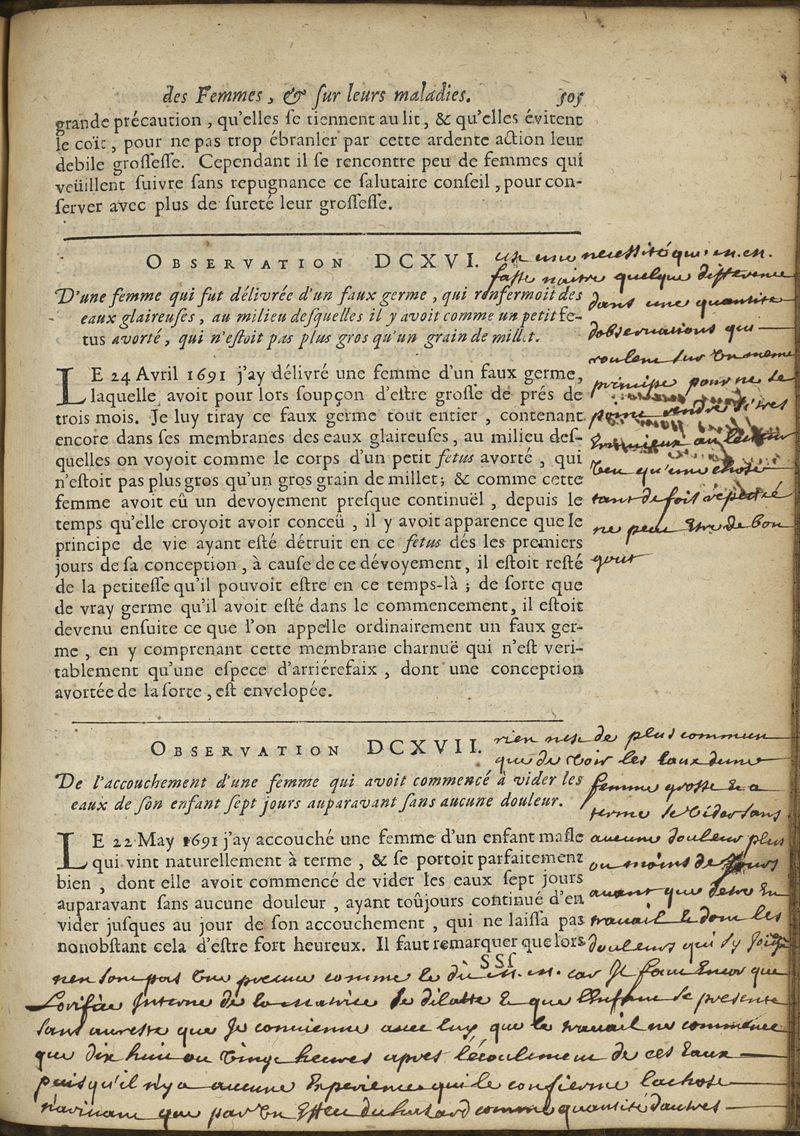 des Femmes, & ſur leurs maladies. 505
grande précaution, qu'elles ſe tiennent au lit, & qu'elles évitent
le coït, pour ne pas trop ébranler par cette ardente action leur
debile groſſeſſe. Cependant il ſe rencontre peu de femmes qui
veüillent ſuivre ſans repugnance ce ſalutaire conſeil, pour con-
ſerver avec plus de ſureté leur groſſeſſe.
OBSERVATION DCXVI.
D'une femme qui fut délivrée d'un faux germe, qui renfermoit des
eaux glaireuſes, au milieu deſquelles il y avoit comme un petit fe-
tus avorté, qui n'eſtoit pas plus gros qu'un grain de millet.
LE 24 Avril 1691 j'ay délivré une femme d'un faux germe,
laquelle avoit pour lors ſoupçon d'eſtre groſſe de prés de
trois mois. Je luy tiray ce faux germe tout entier, contenant
encore dans ſes membranes des eaux glaireuſes, au milieu deſ-
quelles on voyoit comme le corps d'un petit fetus avorté, qui
n'eſtoit pas plus gros qu'un gros grain de millet; & comme cette
femme avoit eû un devoyement preſque continuël, depuis le
temps qu'elle croyoit avoir conceü, il y avoit apparence que le
principe de vie ayant eſté détruit en ce fetus dés les premiers
jours de ſa conception, à cauſe de ce dévoyement, il eſtoit reſté
de la petiteſſe qu'il pouvoit eſtre en ce temps-là; de ſorte que
de vray germe qu'il avoit eſté dans le commencement, il eſtoit
devenu enſuite ce que l'on appelle ordinairement un faux ger-
me, en y comprenant cette membrane charnuë qui n'eſt veri-
tablement qu'une eſpece d'arriérefaix, dont une conception
avortée de la ſorte, eſt envelopée.
une necessité qu'. m. m.
fasse naitre quelque difference
dans une quantité
dobseruations qui
roulent sur Un meme
principe pour ne le
rendre tres
Ennuieux au lecteur
Veu qu'une chose
tant de fois repetée
ne peut Etre de bon
gout
OBSERVATION DCXVII.
De l'accouchement d'une femme qui avoit commencé à vider les
eaux de ſon enfant ſept jours auparavant ſans aucune douleur.
LE 22 May 1691 j'ay accouché une femme d'un enfant maſle
qui vint naturellement à terme, & ſe portoit parfaitement
bien, dont elle avoit commencé de vider les eaux ſept jours
auparavant ſans aucune douleur, ayant toûjours continué d'en
vider juſques au jour de ſon accouchement, qui ne laiſſa pas
nonobſtant cela d'eſtre fort heureux. Il faut remarquer que lors
SSſ
rien nest de plus commun
que de Voir les Eaux dune
femme grosse Et a
terme se Vider sans
aucune douleur plus
ou moins de Jours
auant que detre En
trauail Et dont les
douleurs qui sy
nen sont pas Une preuue comme le dit m. m. car Il faut Encor que
Lorifice Interne de la matrice se dilatte Et que lEnfant se presente
sans aureste que Je conuienne auec luy que le trauail ne commence
que dix huit ou Vingt heures apres lécoulement de ces Eaux
puisqu'il ny a aucune Experience qui le confirme lachose
narriuant que par Un Effet du hasard comme quantité dautres